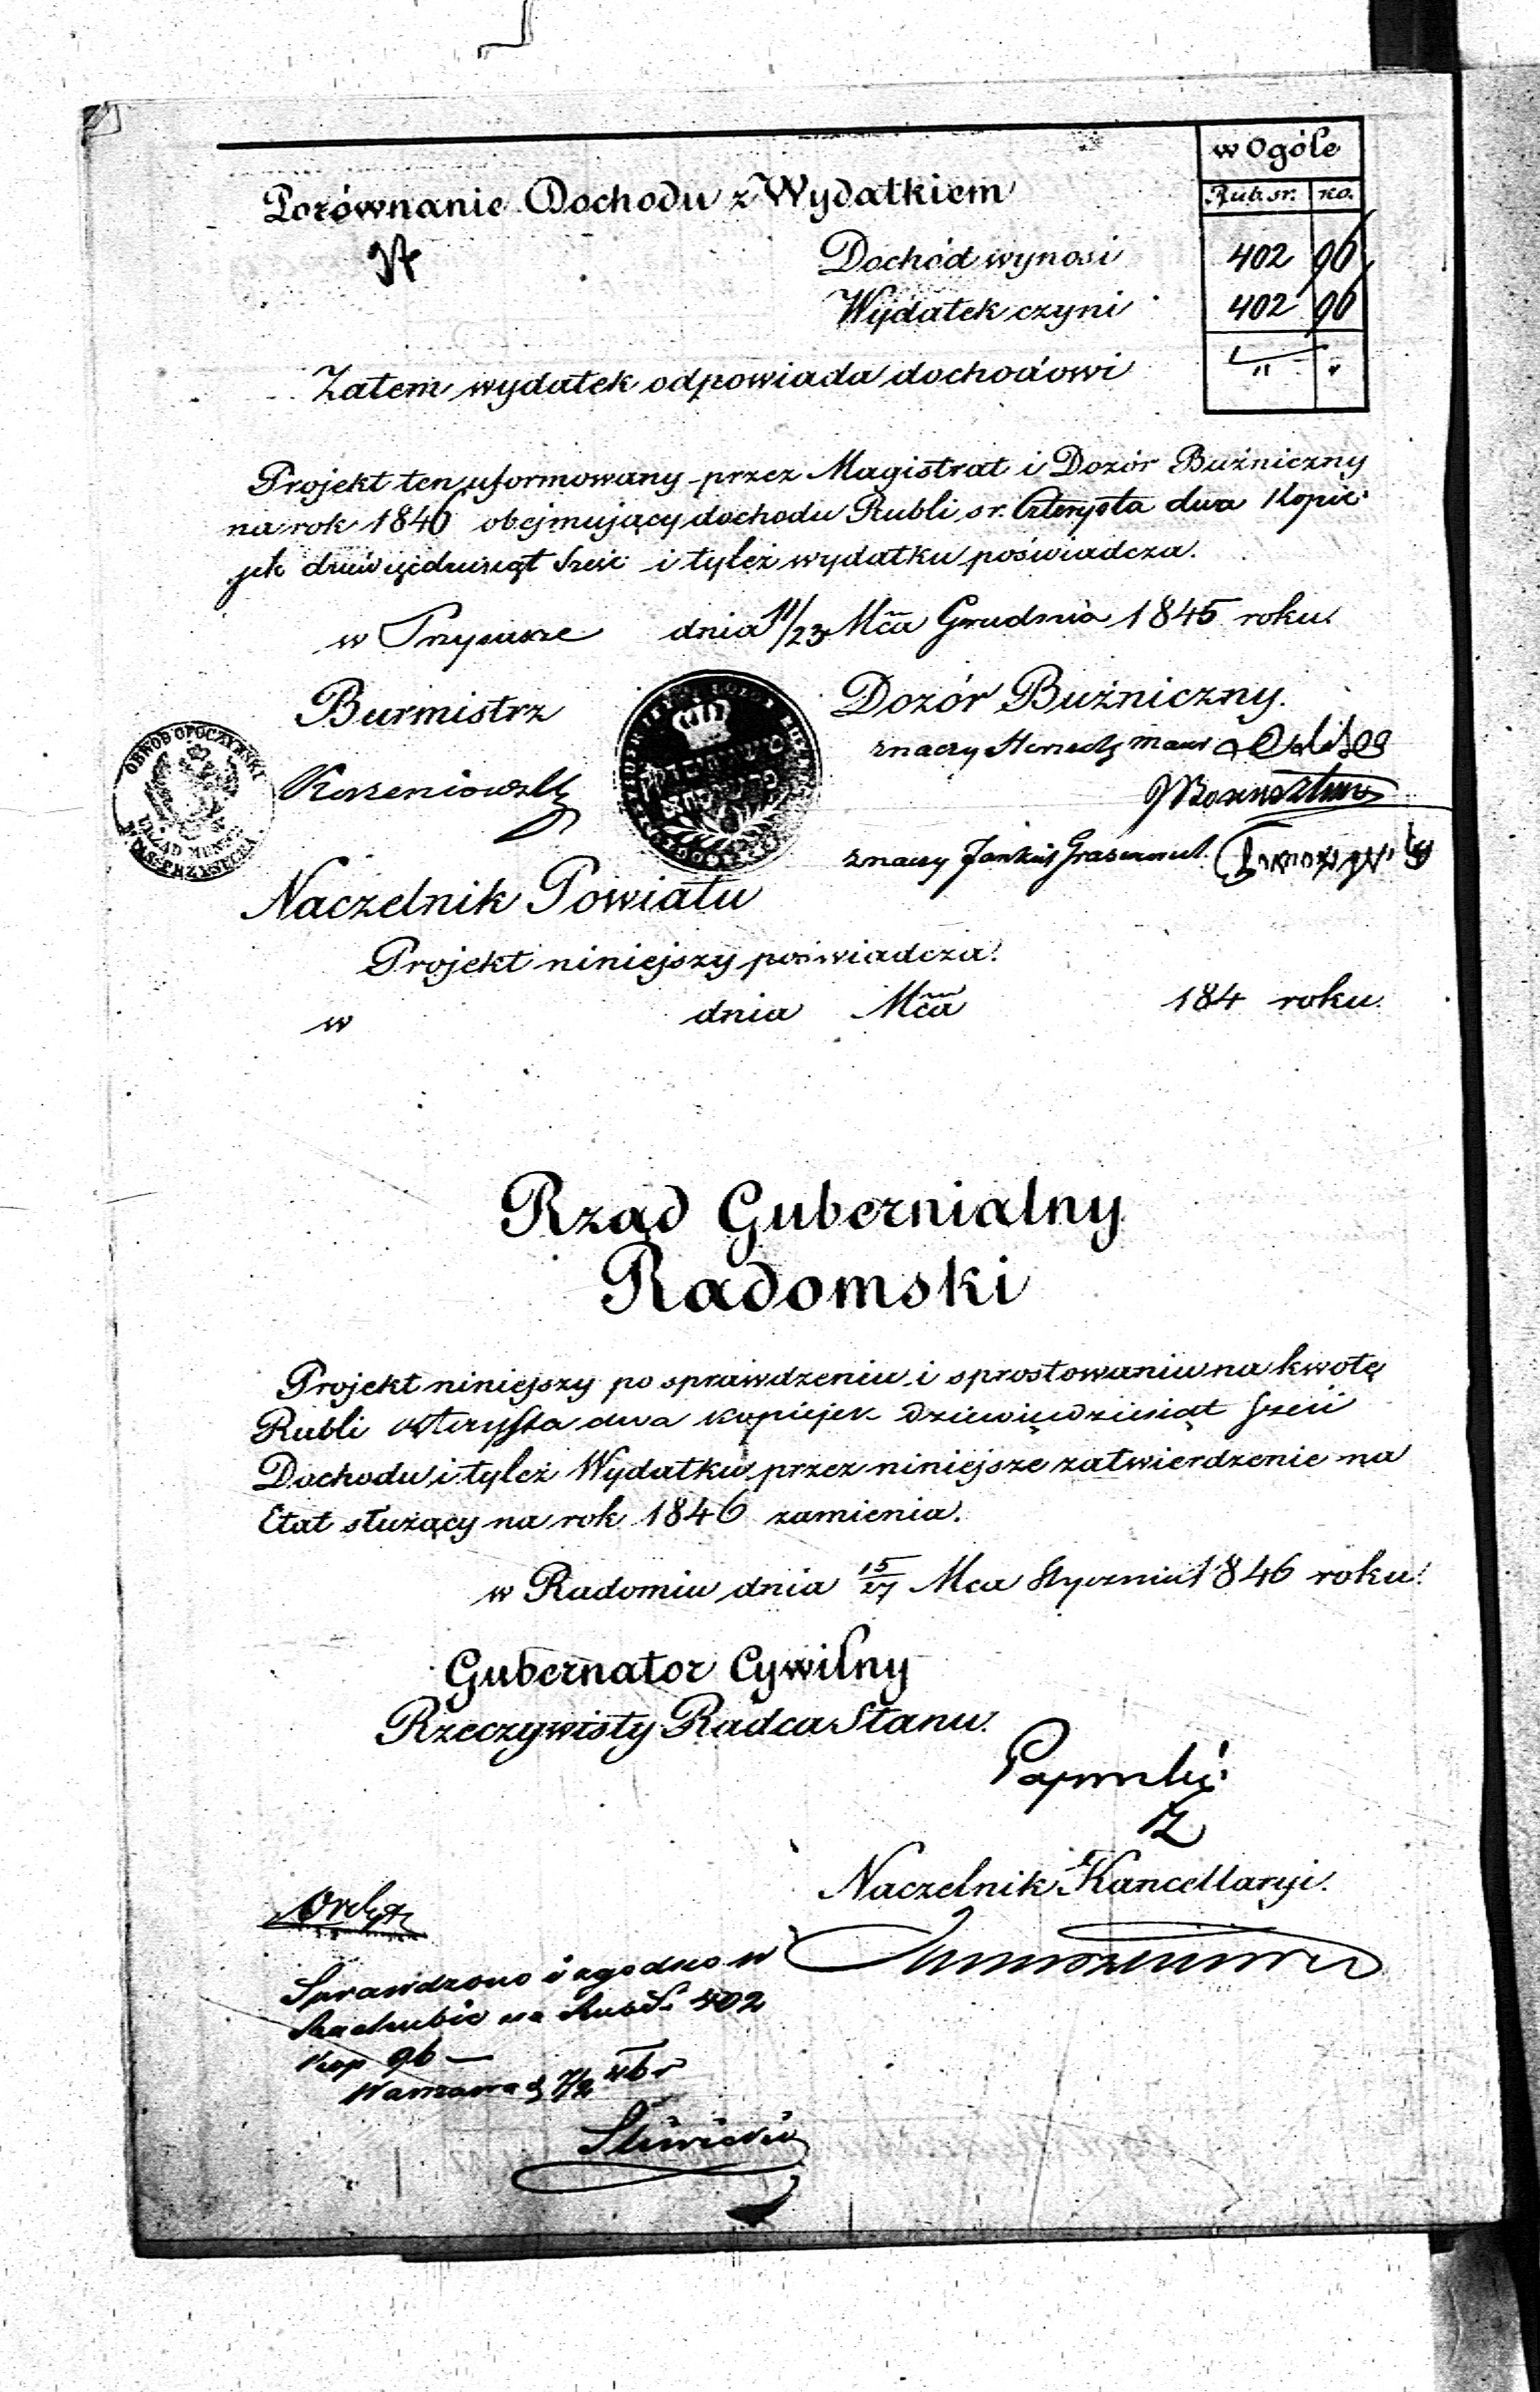 w Ogóle
Porównanie Dochodu z Wydatkiem
Rub. sr. ko.
Dochód wynosi 402 96
Wydatek czyni 402 96
Zatem wydatek odpowiada dochodowi " "
Projekt ten uformowany przez Magistrat i Dozór Buźniczny
na rok 1846 obejmujący dochodu Rubli sr. Czterysta dwa Kopie
jek dziewięćdziesiąt sześć i tyleż wydatku poświadcza.
w Przysusze dnia 11/23 Mča Grudnia 1845 roku.
Burmistrz
Dozór Buźniczny.
OBWÓD OPOCZYŃSKI
URZĄD
znaczy
Korzeniowski
znaczy Jankiel
Naczelnik Powiatu
Projekt niniejszy poświadcza.
w dnia Mča 184 roku.
Rząd Gubernialny
Radomski
Projekt niniejszy po sprawdzeniu i sprostowaniu na kwotę
Rubli czterysta dwa kopiejek dziewięćdziesiąt sześć
Dochodu i tyleż Wydatku przez niniejsze zatwierdzenie na
Etat służący na rok 1846 zamienia.
w Radomiu dnia 15/27 Mca Stycznia 1846 roku.
Gubernator Cywilny
Rzeczywisty Radca Stanu.
Naczelnik Kancellaryi.
Sprawdzono i zgodno w
Rachubie na Rub S. 402
Kop 96 —
Warszawa d 46 r
Śliwicki